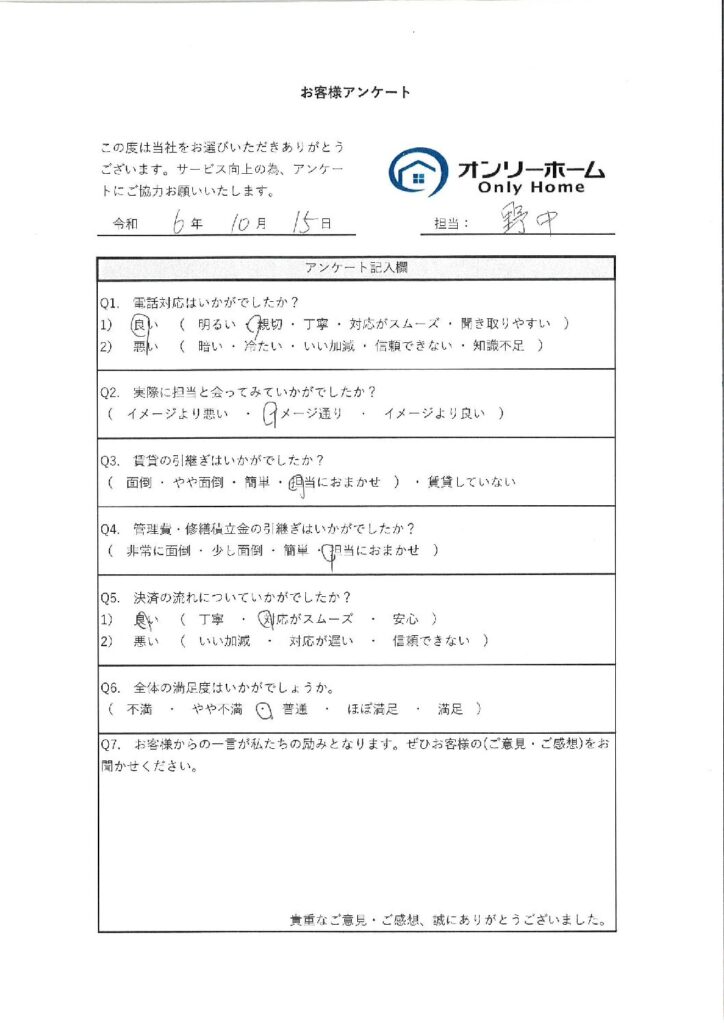 お客様アンケート
この度は当社をお選びいただきありがとう
ございます。サービス向上の為、アンケー
トにご協力お願いいたします。
オンリーホーム
Only Home
令和 6年 10月 15日
担当： 野中
アンケート記入欄
Q1. 電話対応はいかがでしたか？
1) 良い （ 明るい ・ 親切 ・ 丁寧 ・ 対応がスムーズ ・ 聞き取りやすい ）
2) 悪い （ 暗い ・ 冷たい ・ いい加減 ・ 信頼できない ・ 知識不足 ）
Q2. 実際に担当と会ってみていかがでしたか？
（ イメージより悪い ・ イメージ通り ・ イメージより良い ）
Q3. 賃貸の引継ぎはいかがでしたか？
（ 面倒 ・ やや面倒 ・ 簡単 ・ 担当におまかせ ） ・ 賃貸していない
Q4. 管理費・修繕積立金の引継ぎはいかがでしたか？
（ 非常に面倒 ・ 少し面倒 ・ 簡単 ・ 担当におまかせ ）
Q5. 決済の流れについていかがでしたか？
1) 良い （ 丁寧 ・ 対応がスムーズ ・ 安心 ）
2) 悪い （ いい加減 ・ 対応が遅い ・ 信頼できない ）
Q6. 全体の満足度はいかがでしょうか。
（ 不満 ・ やや不満 ・ 普通 ・ ほぼ満足 ・ 満足 ）
Q7. お客様からの一言が私たちの励みとなります。ぜひお客様の(ご意見・ご感想)をお
聞かせください。
貴重なご意見・ご感想、誠にありがとうございました。